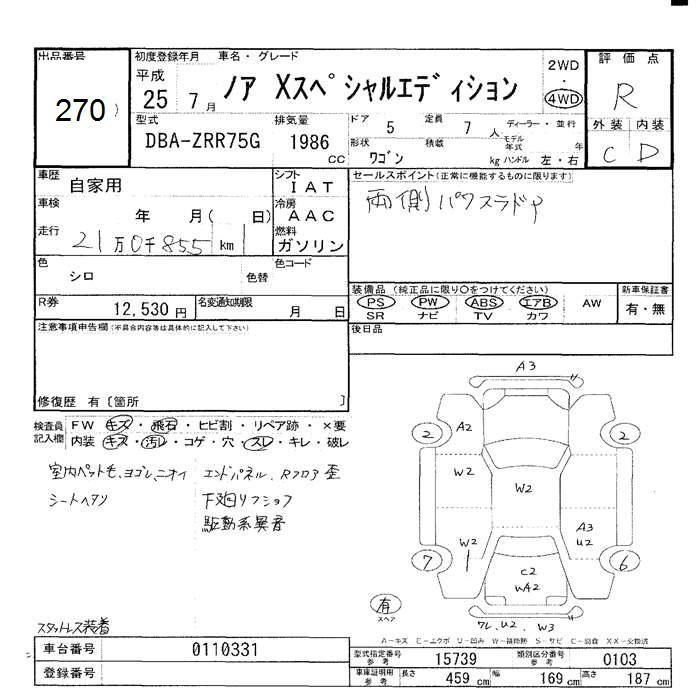 出品番号 270
初度登録年月 車名・グレード
平成 25 7月 ノア Xスペシャルエディション
2WD ・ 4WD
評価点 R
外装 内装
C D
型式 排気量
DBA-ZRR75G 1986 CC
ドア 5 定員 7 人 ディーラー・並行
形状 ワゴン 積載 kg モデル年式 年
ハンドル 左・右
車歴 自家用
シフト IAT
車検 年 月( 日)
冷房 AAC
走行 21万0千855 km
燃料 ガソリン
セールスポイント(正常に機能するものに限ります)
両側パワスラドア
色 シロ 色替
色コード
R券 12,530 円
名変通知期限 月 日
装備品 (純正品に限り○をつけてください)
PS PW ABS エアB AW
SR ナビ TV カワ
新車保証書
有・無
後日品
注意事項申告欄(不具合内容等は具体的に記入して下さい)
修復歴 有〔箇所 〕
検査員記入欄
FW キズ・飛石・ヒビ割・リペア跡・×要
内装 キズ・汚レ・コゲ・穴・スレ・キレ・破レ
室内ペット毛、ヨゴレ、ニオイ
シートヘタリ
エンドパネル、Rフロア歪
下廻リフショク
駆動系異音
A3
2 A2 2
W2 W2
A3
U2
W2
7 6
C2
WA2
有
スペア
ワレ、U2 W3
A-キズ E-エクボ U-凹み W-補修跡 S-サビ C-腐食 XX-交換済
スタットレス装着
車台番号 0110331
登録番号
型式指定番号 参考 15739
類別区分番号 参考 0103
車庫証明用 参考 長さ 459 cm 幅 169 cm 高さ 187 cm